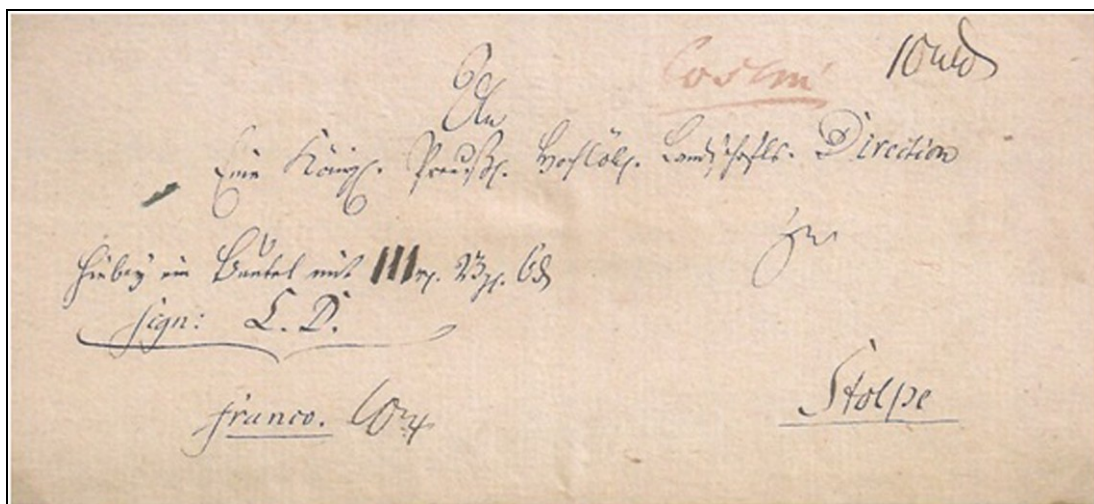 Coslin
An
Eine Königl. Preußl. Hochlöbl. Landschafts. Direction
zu
hiebey ein Beutel mit III rl. 23 gl. 6 d
sign: L. D.
franco.
Stolpe